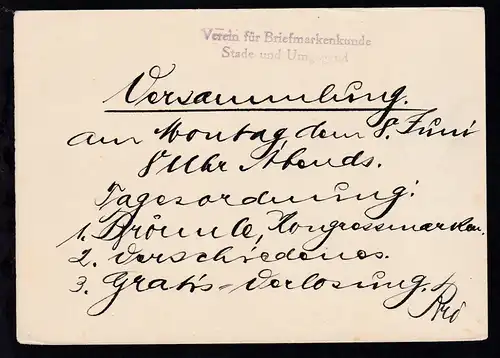 Verein für Briefmarkenkunde
Stade und Umgegend
Versammlung.
am Montag, dem 8. Juni
8 Uhr Abends.
Tagesordnung:
1. Brömle, Kongressmarken.
2. Verschiedenes.
3. Gratis-Verlosung.